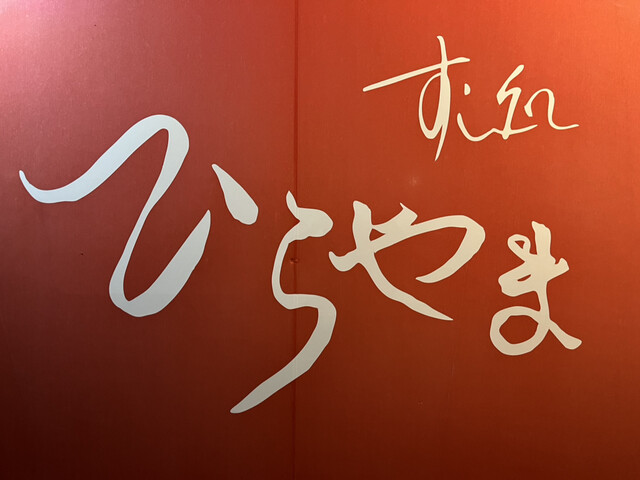 すし処
ひらやま